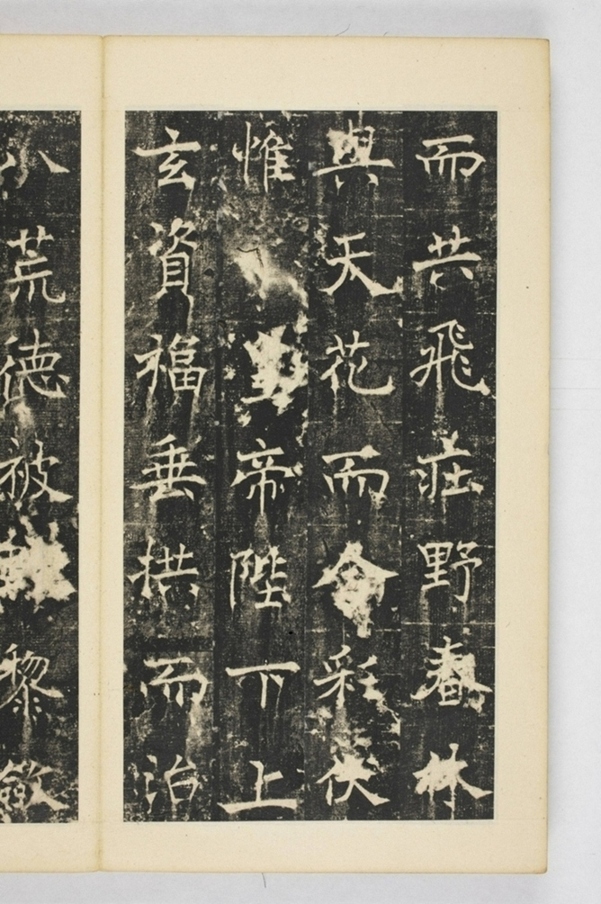 而共飛莊野春林
與天花而合彩伏
惟帝陛下上
玄資福垂拱而治
八荒德被黎斂